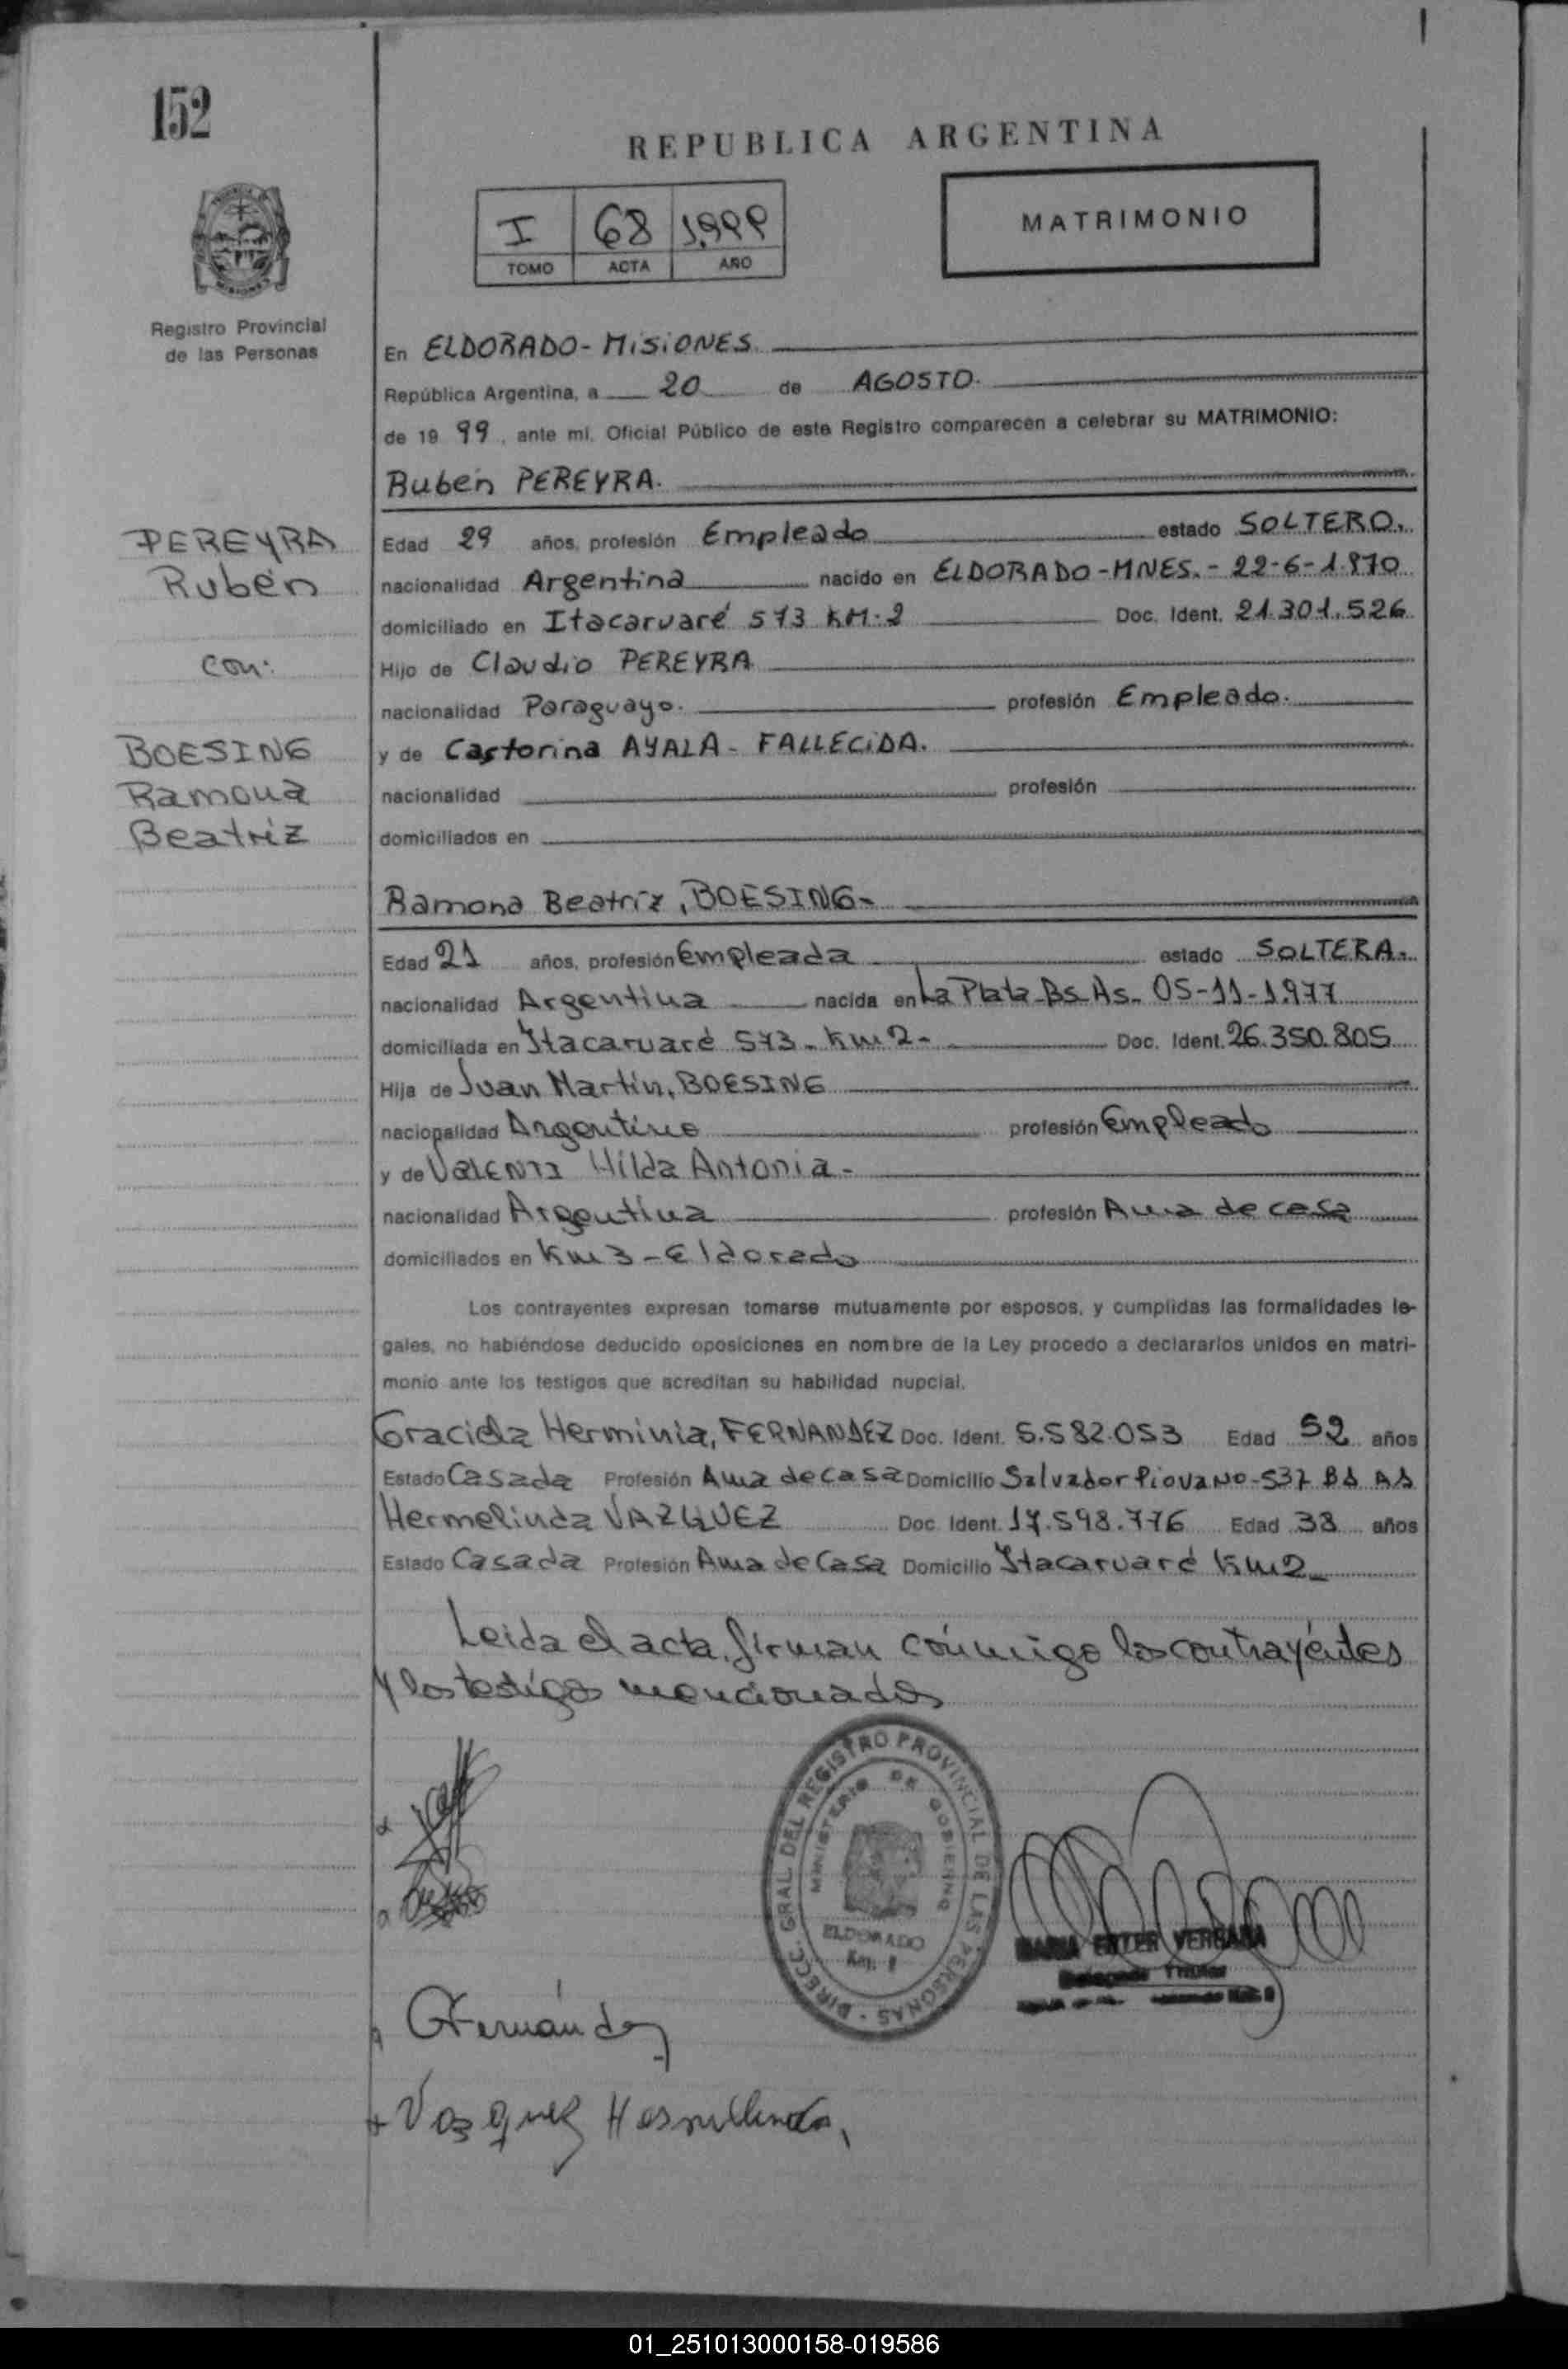 152
REPUBLICA ARGENTINA
I 68 1.999
TOMO ACTA AÑO
MATRIMONIO
Registro Provincial
de las Personas
En ELDORADO - MiSiONES.
República Argentina, a 20 de AGOSTO.
de 19 99, ante mi. Oficial Público de este Registro comparecen a celebrar su MATRIMONIO:
Rubén PEREYRA.
PEREYRA
Rubén
con:
BOESING
Ramona
Beatriz
Edad 29 años, profesión Empleado estado SOLTERO.
nacionalidad Argentina nacido en ELDORADO - MNES. - 22-6-1.970
domiciliado en Itacaruaré 573 KM: 2 Doc. Ident. 21.301.526
Hijo de Claudio PEREYRA
nacionalidad Paraguayo. profesión Empleado.
y de Castorina AYALA - FALLECiDA.
nacionalidad profesión
domiciliados en
Ramona Beatríz, BOESING-
Edad 21 años, profesión Empleada estado SOLTERA.
nacionalidad Argentina nacida en La Plata-Bs As- 05-11-1.977
domiciliada en Itacaruaré 573 - Km 2- Doc. Ident. 26.350.805
Hija de Juan Martín, BOESING
nacionalidad Argentino profesión Empleado
y de VALENTI Hilda Antonia -
nacionalidad Argentina profesión Ama de casa
domiciliados en Km 3 - Eldorado
Los contrayentes expresan tomarse mutuamente por esposos, y cumplidas las formalidades le-
gales, no habiéndose deducido oposiciones en nombre de la Ley procedo a declararlos unidos en matri-
monio ante los testigos que acreditan su habilidad nupcial.
Graciela Herminia, FERNANDEZ Doc. Ident. 5.582.053 Edad 52 años
Estado Casada Profesión Ama de casa Domicilio Salvador Piovano-537 Bs As
Hermelinda VAZQUEZ Doc. Ident. 17.598.776 Edad 38 años
Estado Casada Profesión Ama de Casa Domicilio Itacaruaré Km 2
Leida el acta, firman conmigo los contrayentes
y los testigos mencionados
DIRECC. GRAL. DEL REGISTRO PROVINCIAL DE LAS PERSONAS
MINISTERIO DE GOBIERNO
ELDORADO
MARIA VERGARA
Titular
GFernández
Vazquez Hermelinda
01_251013000158-019586